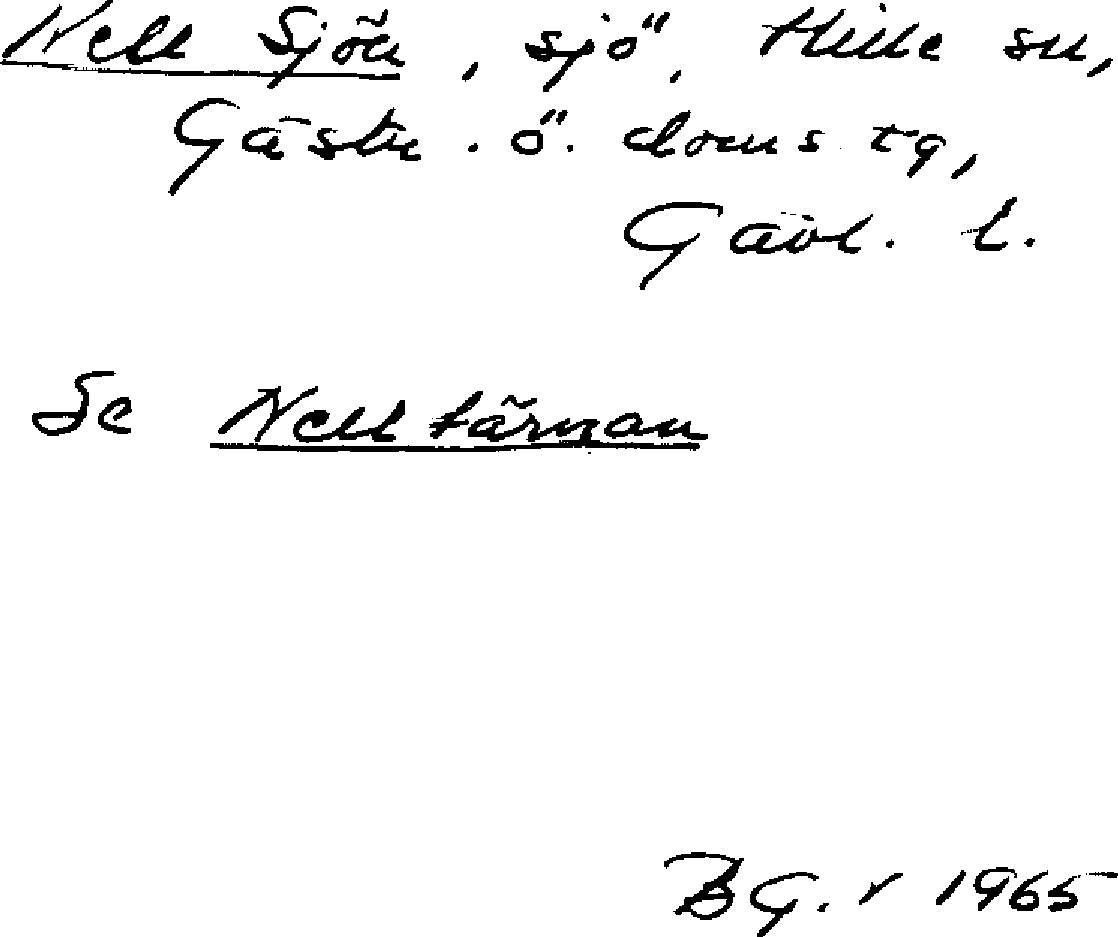 Nell Sjön, sjö, Hille sn,
Gästr. ö. doms tg,
Gävl. l.
Se Nell tärnan
BG. r 1965